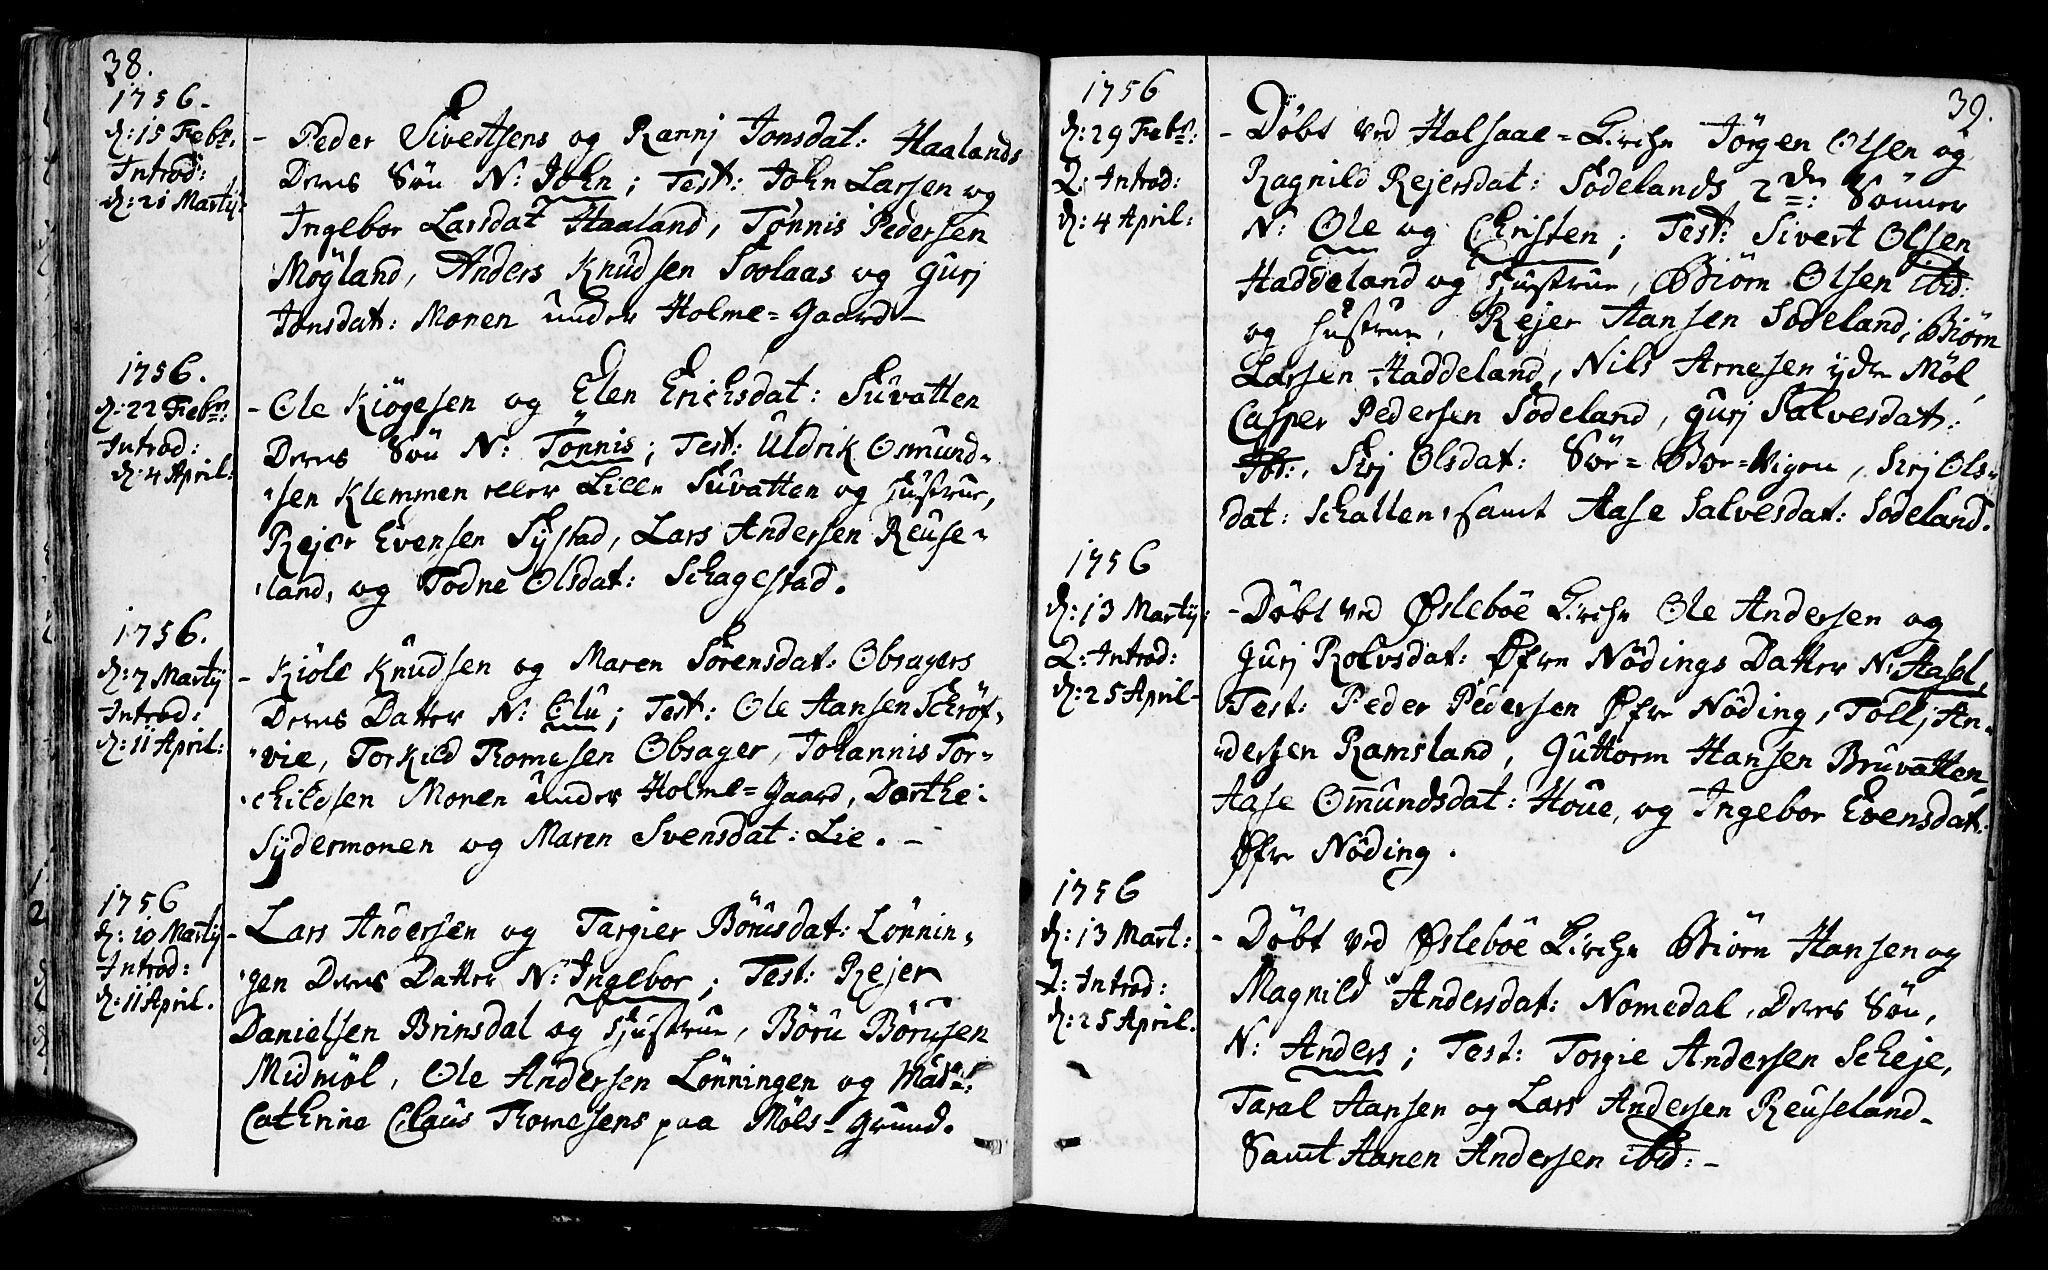 38.
1756.
d: 15 Febr:
Introd:
d: 21 Martij:
- Peder Sivertsens og Rannj Jonsdat: Haalands
Deres Søn N: John; Test: John Larsen og
Ingebor Larsdat Haaland, Tønnis Pedersen
Møgland, Anders Knudsen Soolaas og Gurj
Jonsdat: Monen under Holme=Gaard -
1756.
d: 22 Febr:
Introd:
d: 4 April:
- Ole Kiøgesen og Elen Erichsdat: Suvatten
Deres Søn N: Tønnis; Test: Uldrik Omund-
sen Klemmen eller Lille Suvatten og Hustrue,
Rejer Evensen Sÿstad, Lars Andersen Reuse-
land, og Todne Olsdat: Schagestad.
1756.
d: 7 Martij
Introd:
d: 11 April:
- Kiöle Knudsen og Maren Sørensdat: Obsagers
Deres Datter N: Olu; Test: Ole Aansen Schröf-
vie, Torkild Thomesen Obsager, Johannis Tor-
childsen Monen under Holme=Gaard, Dorthe:
Sÿdermonen og Maren Svensdat: Lie. -
1756
d: 10 Martij
Introd:
d: 11 April.
- Lars Andersen og Targier Børusdat: Lønnin-
gen Deres Datter N: Ingebor; Test: Rejer
Danielsen Brinsdal og Hustrue, Børu Børusen
Midmøl, Ole Andersen Lønningen og Mad:
Cathrine Claus Thomesens paa Møls=Grund.
39.
1756
d: 29 Febr:
2: Introd:
d: 4 April:
- Döbt ved Halsaae=Kirche Jørgen Olsen og
Ragnild Rejersdat: Sodelands 2de: Sønner
N: Ole og Christen; Test: Sivert Olsen
Haddeland og Hustrue, Biörn Olsen ibid:
og Hustrue, Rejer Aansen Sodeland; Biörn
Larsen Haddeland, Nils Arnesen ydre Møl,
Casper Pedersen Sodeland, Gurj Salvesdat:
Ibt:, Sirj Olsdat: Sør=Boe=Vigen, Sirj Ols-
dat: Schatten, samt Aase Salvesdat: Sodeland.
1756
d: 13 Martij:
2: Introd:
d: 25 April -
- Döbt ved Øsleböe Kirche Ole Andersen og
Gurj Rolvsdat: Øfre Nødings Datter N: Aasel,
Test: Peder Pedersen Øfre Nøding, Tollj An-
dersen Ramsland, Guttorm Hansen Bruvatten,
Aase Omundsdat: Houe, og Ingebor Evensdat:
Øfre Nøding.
1756
d: 13 Mart:
2: Introd:
d: 25 April.
- Döbt ved Øsleböe Kirche Biörn Hansen og
Magnild Andersdat: Nomedal, Deres Søn,
N: Anders; Test: Torgie Andersen Scheje,
Taral Aansen og Lars Andersen Reuseland -
Samt Aanen Andersen ibid: -